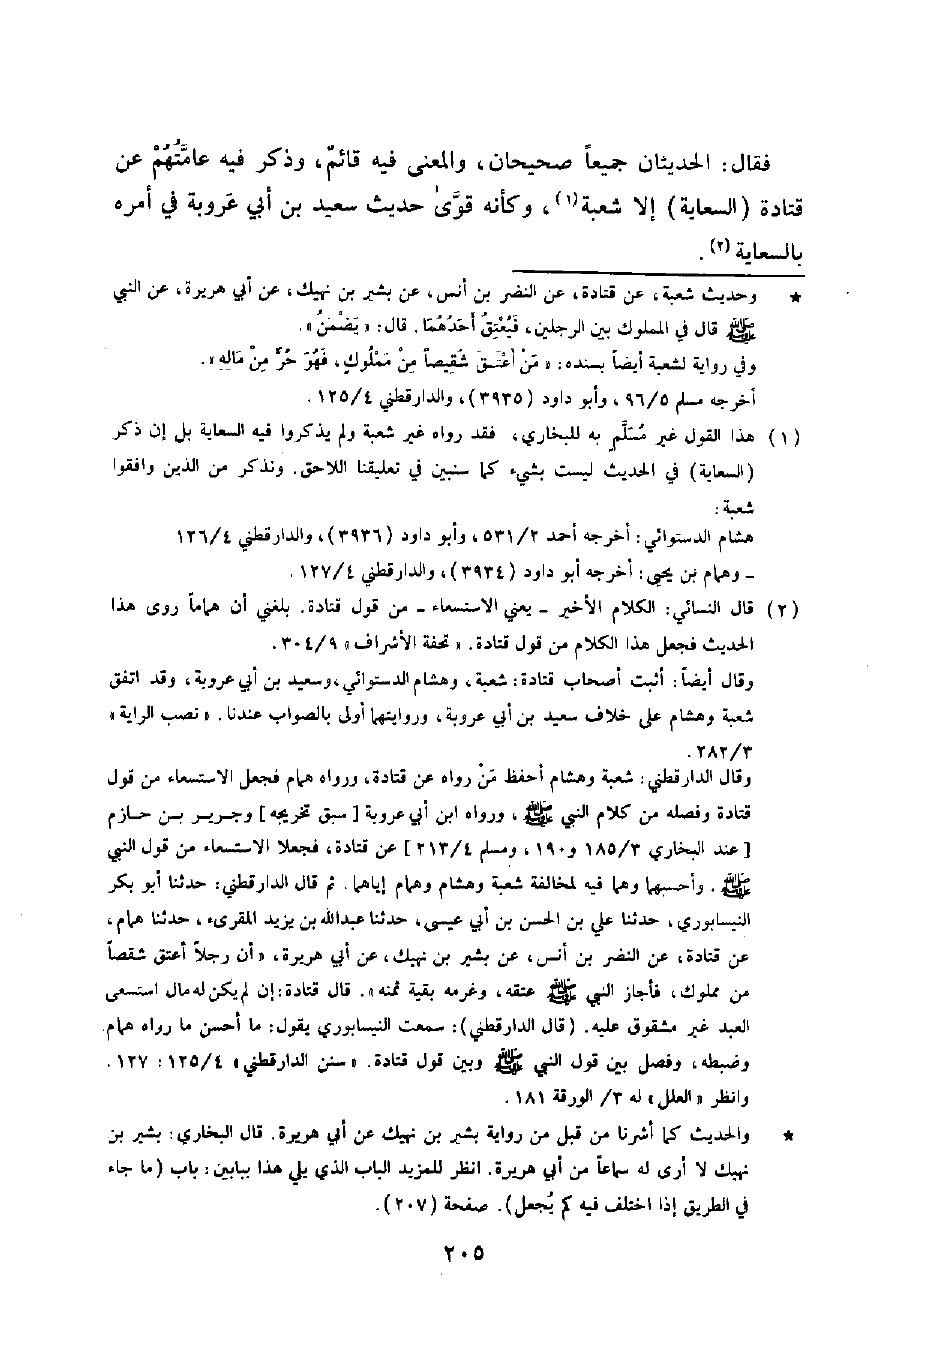 فقال: الحديثان جميعاً صحيحان، والمعنى فيه قائمٌ، وذكر فيه عامَّتُهُمْ عن
قتادة (السعاية) إلا شعبة(١)، وكأنه قوَّىٰ حديث سعيد بن أبي عَروبة في أمره
بالسعاية(٢).
★ وحديث شعبة، عن قتادة، عن النضر بن أنس، عن بشير بن نهيك، عن أبي هريرة، عن النبي
ﷺ قال في المملوك بين الرجلين، فَيُعْتِقُ أَحَدُهُمَا. قال: «يَضْمَنُ».
وفي رواية لشعبة أيضاً بسنده: «مَنْ أَعْتَـقَ شَقِيصاً مِنْ مَمْلُوكٍ، فَهُوَ حُرٌّ مِنْ مَالِهِ».
أخرجه مسلم ٩٦/٥، وأبو داود (٣٩٣٥)، والدارقطني ١٢٥/٤.
(١) هذا القول غير مُسَلَّمٍ به للبخاري، فقد رواه غير شعبة ولم يذكروا فيه السعاية بل إن ذكر
(السعاية) في الحديث ليست بشيء كما سنبين في تعليقنا اللاحق. ونذكر من الذين وافقوا
شعبة:
هشام الدستوائي: أخرجه أحمد ٥٣١/٢، وأبو داود (٣٩٣٦)، والدارقطني ١٢٦/٤
ـ وهمام بن يحيى: أخرجه أبو داود (٣٩٣٤)، والدارقطني ١٢٧/٤.
(٢) قال النسائي: الكلام الأخير ـ يعني الاستسعاء ـ من قول قتادة. بلغني أن هماماً روى هذا
الحديث فجعل هذا الكلام من قول قتادة. «تحفة الأشراف» ٣٠٤/٩.
وقال أيضاً: أثبت أصحاب قتادة: شعبة، وهشام الدستوائي، وسعيد بن أبي عروبة، وقد اتفق
شعبة وهشام على خلاف سعيد بن أبي عروبة، وروايتهما أولى بالصواب عندنا. «نصب الراية»
٢٨٢/٣.
وقال الدارقطني: شعبة وهشام أحفظ مَنْ رواه عن قتادة، ورواه همام فجعل الاستسعاء من قول
قتادة وفصله من كلام النبي ﷺ، ورواه ابن أبي عروبة [سبق تخريجه] وجريـر بـن حـازم
[عند البخاري ١٨٥/٣ و١٩٠، ومسلم ٢١٣/٤] عن قتادة، فجعلا الاستسعاء من قول النبي
ﷺ. وأحسبهما وهما فيه لمخالفة شعبة وهشام وهمام إياهما. ثم قال الدارقطني: حدثنا أبو بكر
النيسابوري، حدثنا علي بن الحسن بن أبي عيسى، حدثنا عبدالله بن يزيد المقرىء، حدثنا همام،
عن قتادة، عن النضر بن أنس، عن بشير بن نهيك، عن أبي هريرة، «أن رجلاً أعتق شقصاً
من مملوك، فأجاز النبي ﷺ عتقه، وغرمه بقية ثمنه». قال قتادة: إن لم يكن له مال استسعى
العبد غير مشقوق عليه. (قال الدارقطني): سمعت النيسابوري يقول: ما أحسن ما رواه همام
وضبطه، وفصل بين قول النبي ﷺ وبين قول قتادة. «سنن الدارقطني» ١٢٥/٤: ١٢٧.
وانظر «العلل» له ٣/ الورقة ١٨١.
★ والحديث كما أشرنا من قبل من رواية بشير بن نهيك عن أبي هريرة. قال البخاري: بشير بن
نهيك لا أرى له سماعاً من أبي هريرة. انظر للمزيد الباب الذي يلي هذا ببابين: باب (ما جاء
في الطريق إذا اختلف فيه كم يُجعل). صفحة (٢٠٧).
٢٠٥